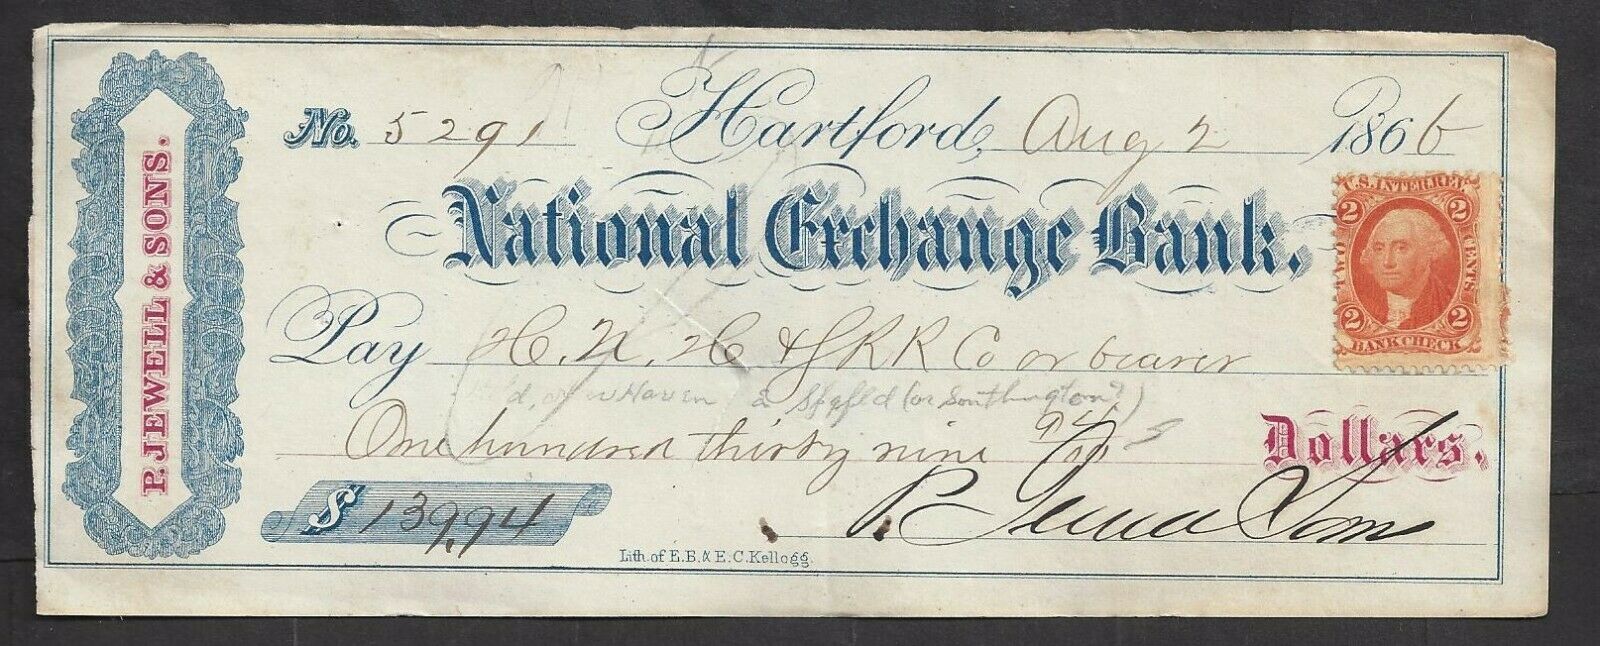 P. JEWELL & SONS.
No. 5291 Hartford, Aug 2 1866
National Exchange Bank.
U.S. INTER. REV.
2 2
TWO CENTS
2 2
BANK CHECK
Pay H. N. H & S R R Co or bearer
New Haven & Spgfld (or Southington?)
One hundred thirty nine 94/100 Dollars.
$ 139.94
P. Jewell & Sons
Lith. of E. B. & E. C. Kellogg.